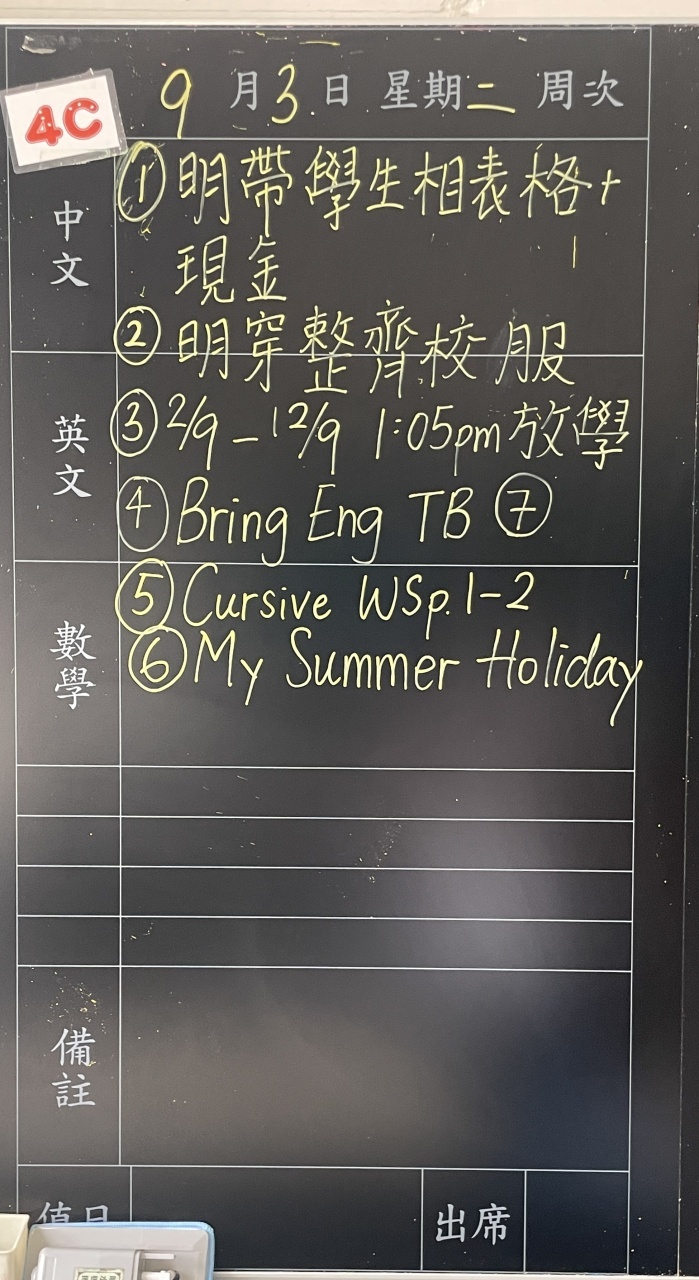 4C
9月3日 星期二 周次
中文
① 明帶學生相表格+
現金
② 明穿整齊校服
英文
③ 2/9 - 12/9 1:05pm放學
④ Bring Eng TB ⑦
數學
⑤ Cursive WS p.1-2
⑥ My Summer Holiday
備註
值日
出席